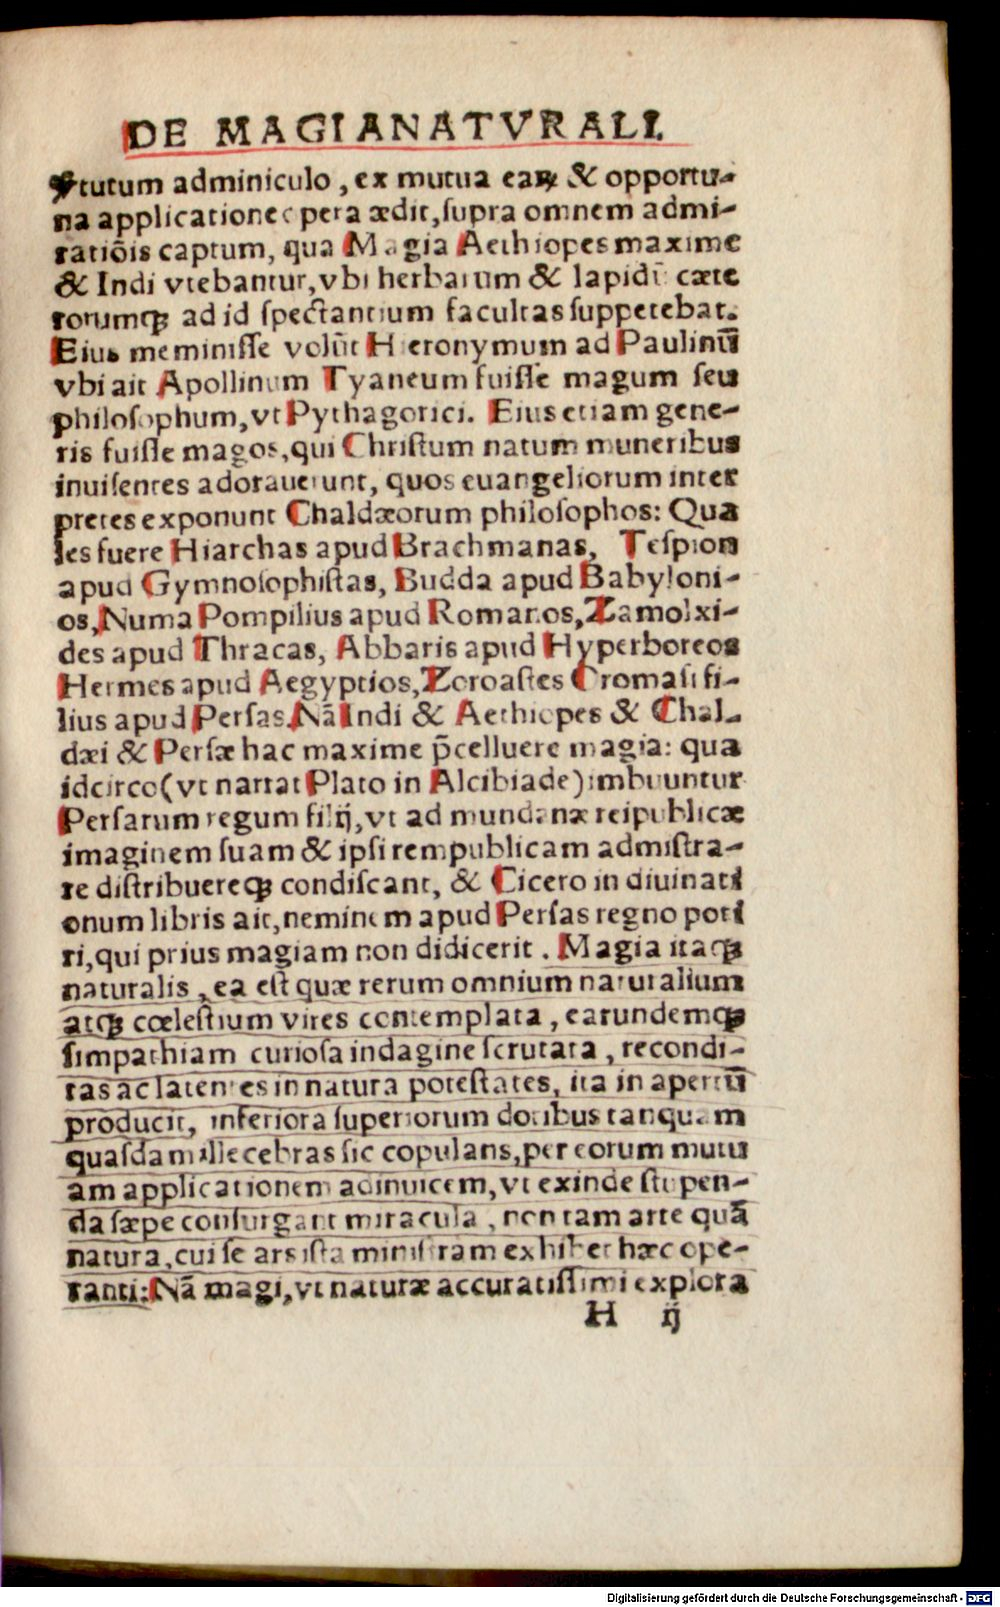 DE MAGIANATVRALI.
ꝟtutum adminiculo, ex mutua eaꝝ & opportu-
na applicatione opera ædit, supra omnem admi-
ratiōis captum, qua Magia Aethiopes maxime
& Indi vtebantur, vbi herbarum & lapidū cæte
rorumqꝫ ad id spectantium facultas suppetebat.
Eius meminisse volūt Hieronymum ad Paulinū
vbi ait Apollinum Tyaneum fuisse magum seu
philosophum, vt Pythagorici. Eius etiam gene-
ris fuisse magos, qui Christum natum muneribus
inuisentes adorauerunt, quos euangeliorum inter
pretes exponunt Chaldæorum philosophos: Qua
les fuere Hiarchas apud Brachmanas, Tespion
apud Gymnosophistas, Budda apud Babyloni-
os, Numa Pompilius apud Romanos, Zamolxi-
des apud Thracas, Abbaris apud Hyperboreos
Hermes apud Aegyptios, Zoroastes Cromasi fi-
lius apud Persas. Nā Indi & Aethiopes & Chal-
dæi & Persæ hac maxime p̄celluere magia: qua
idcirco (vt narrat Plato in Alcibiade) imbuuntur
Persarum regum filij, vt ad mundanæ reipublicæ
imaginem suam & ipsi rempublicam admistra-
re distribuereqꝫ condiscant, & Cicero in diuinati
onum libris ait, neminem apud Persas regno poti
ri, qui prius magiam non didicerit. Magia itaqꝫ
naturalis, ea est quæ rerum omnium naturalium
atqꝫ cœlestium vires contemplata, earundemqꝫ
simpathiam curiosa indagine scrutata, recondi-
tas ac latentes in natura potestates, ita in apertū
producit, inferiora superiorum dotibus tanquam
quasdam illecebras sic copulans, per eorum mutu
am applicationem adinuicem, vt exinde stupen-
da sæpe consurgant miracula, non tam arte quā
natura, cui se ars ista ministram exhibet hæc ope-
ranti: Nā magi, vt naturæ accuratissimi explora
H ij
Digitalisierung gefördert durch die Deutsche Forschungsgemeinschaft - DFG